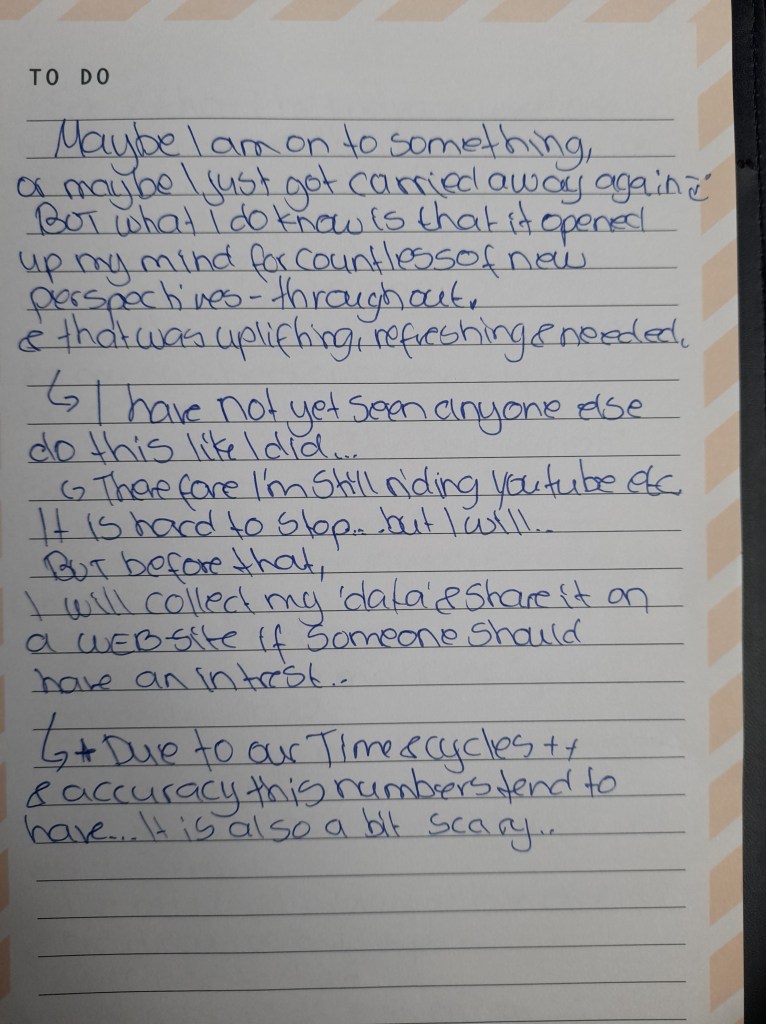 TO DO
Maybe I am on to something,
or maybe I just got carried away again :)
BUT what I do know is that it opened
up my mind for countless of new
perspectives - throughout.
& that was uplifting, refreshing & needed.
↳ I have not yet seen anyone else
do this like I did...
↳ Therefore I'm still riding youtube etc.
It is hard to stop.. but I will..
BUT before that,
I will collect my 'data' & share it on
a WEB-site if someone should
have an intrest..
↳ * Due to our Time & cycles ++
& accuracy this numbers tend to
have... It is also a bit scary..